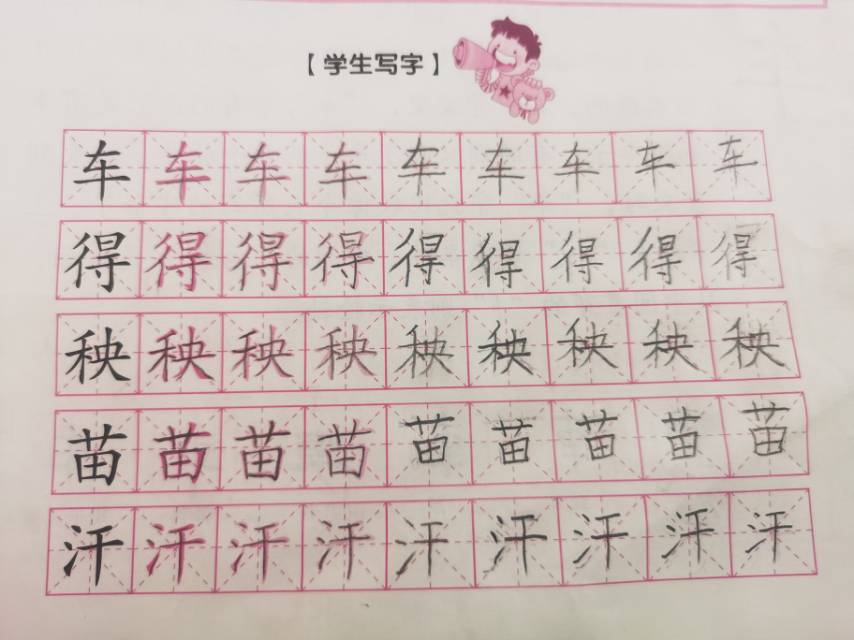 【学生写字】
车车车车车车车车车
得得得得得得得得得
秧秧秧秧秧秧秧秧秧
苗苗苗苗苗苗苗苗苗
汗汗汗汗汗汗汗汗汗